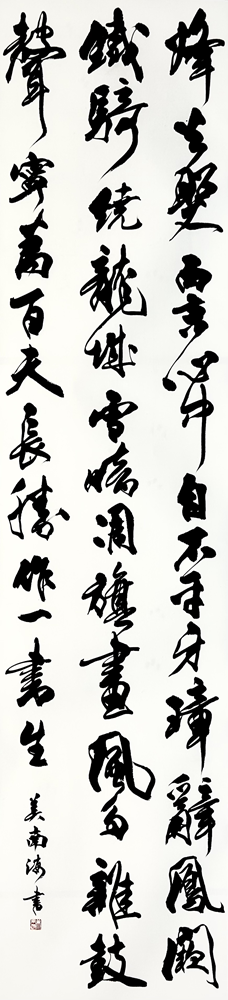 烽火照西京心中自不平牙璋辭鳳闕
鐵騎繞龍城雪暗凋旗畫風多雜鼓
聲寧為百夫長勝作一書生
南海書